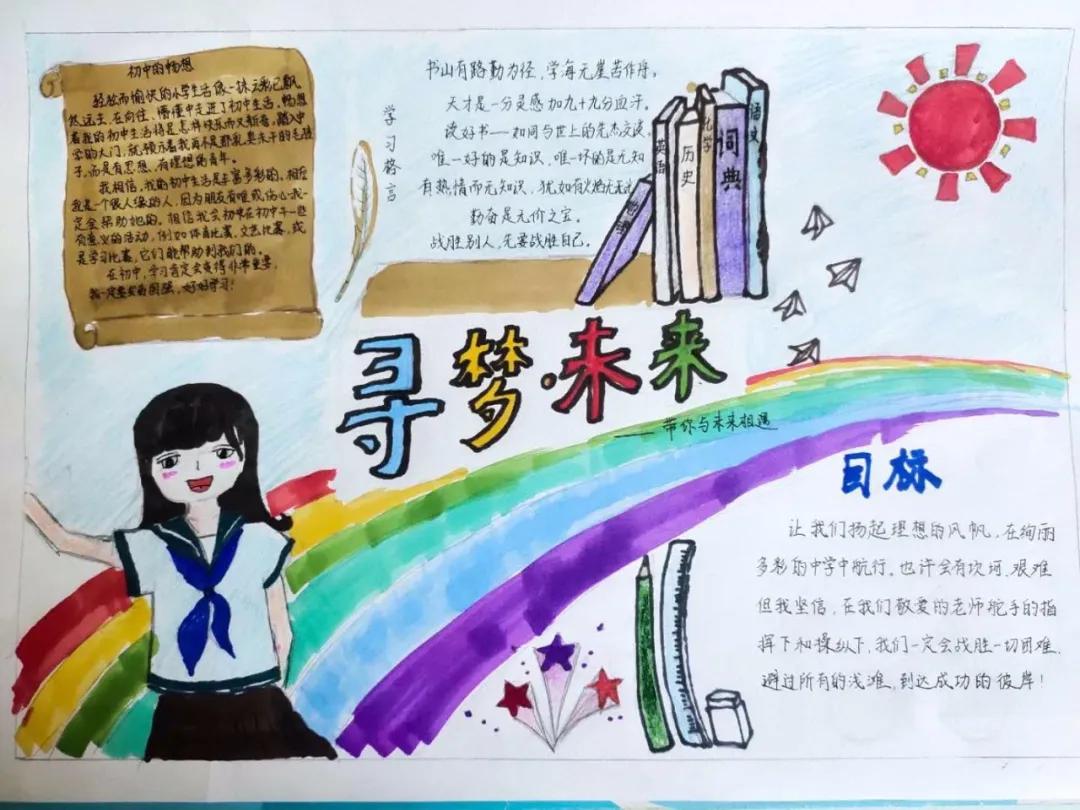 初中的畅想
轻松而愉快的小学生活像一抹云彩已飘
然远去,在向往、懵懂中走进了初中生活,畅想
着我的初中生活将是怎样快乐而又新奇,踏入中
学的大门,就预示着我再不是那乳臭未干的毛孩
子,而是有思想、有理想的青年。
我相信,我的初中生活是丰富多彩的。相应
我是个很人缘的人,因为朋友有难或伤心我一
定会帮助她的。相信我会初中在初中开一些
有意义的活动,例如体育比赛,文艺比赛,或
是学习比赛,它们能帮助到我们的。
在初中,学习肯定会变得非常重要,
我一定要发奋图强,好好学习!
学习格言
书山有路勤为径,学海无崖苦作舟。
天才是一分灵感加九十九分血汗。
读好书——如同与世上的先杰交谈。
唯一好的是知识,唯一坏的是无知
有热情而无知识,犹如有火焰无无光
勤奋是无价之宝。
战胜别人,先要战胜自己。
英语
历史
化学
词典
语文
寻梦·未来
——带你与未来相遇
目标
让我们扬起理想的风帆,在绚丽
多彩的中学中航行。也许会有坎坷、艰难
但我坚信,在我们敬爱的老师舵手的指
挥下和操纵下,我们一定会战胜一切困难,
避过所有的浅滩,到达成功的彼岸!